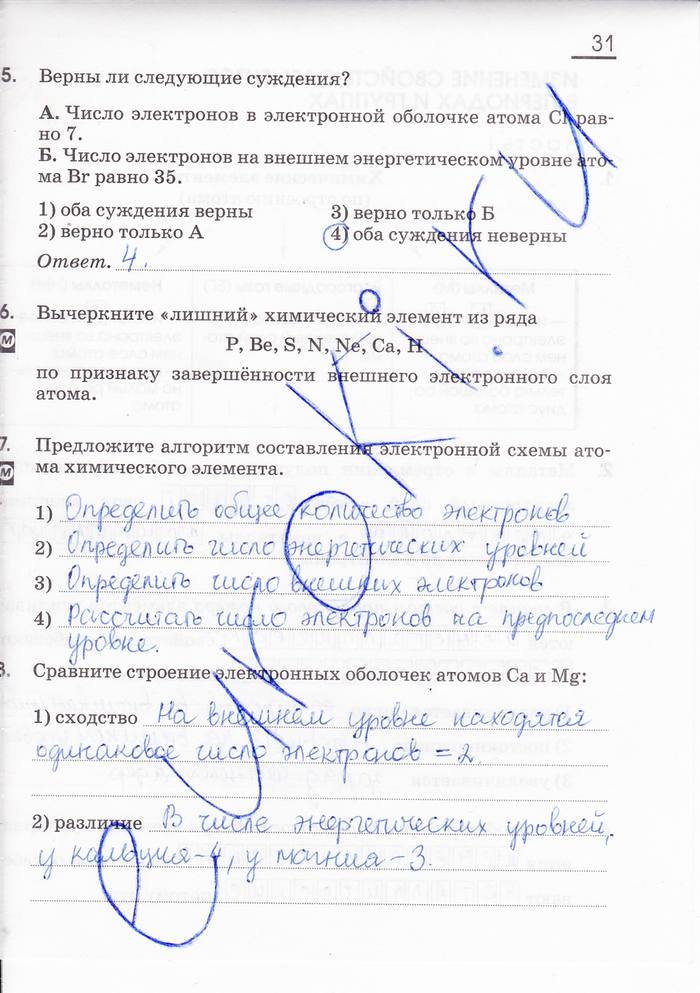 31
5. Верны ли следующие суждения?
А. Число электронов в электронной оболочке атома Cl рав-
но 7.
Б. Число электронов на внешнем энергетическом уровне ато-
ма Br равно 35.
1) оба суждения верны 3) верно только Б
2) верно только А 4) оба суждения неверны
Ответ. 4.
6. Вычеркните «лишний» химический элемент из ряда
М
P, Be, S, N, Ne, Ca, H
по признаку завершённости внешнего электронного слоя
атома.
7. Предложите алгоритм составления электронной схемы ато-
М ма химического элемента.
1) Определить общее количество электронов
2) Определить число энергетических уровней
3) Определить число внешних электронов
4) Рассчитать число электронов на предпоследнем
уровне.
8. Сравните строение электронных оболочек атомов Ca и Mg:
1) сходство На внешнем уровне находятся
одинаковое число электронов = 2
2) различие В числе энергетических уровней,
у кальция-4, у магния-3.